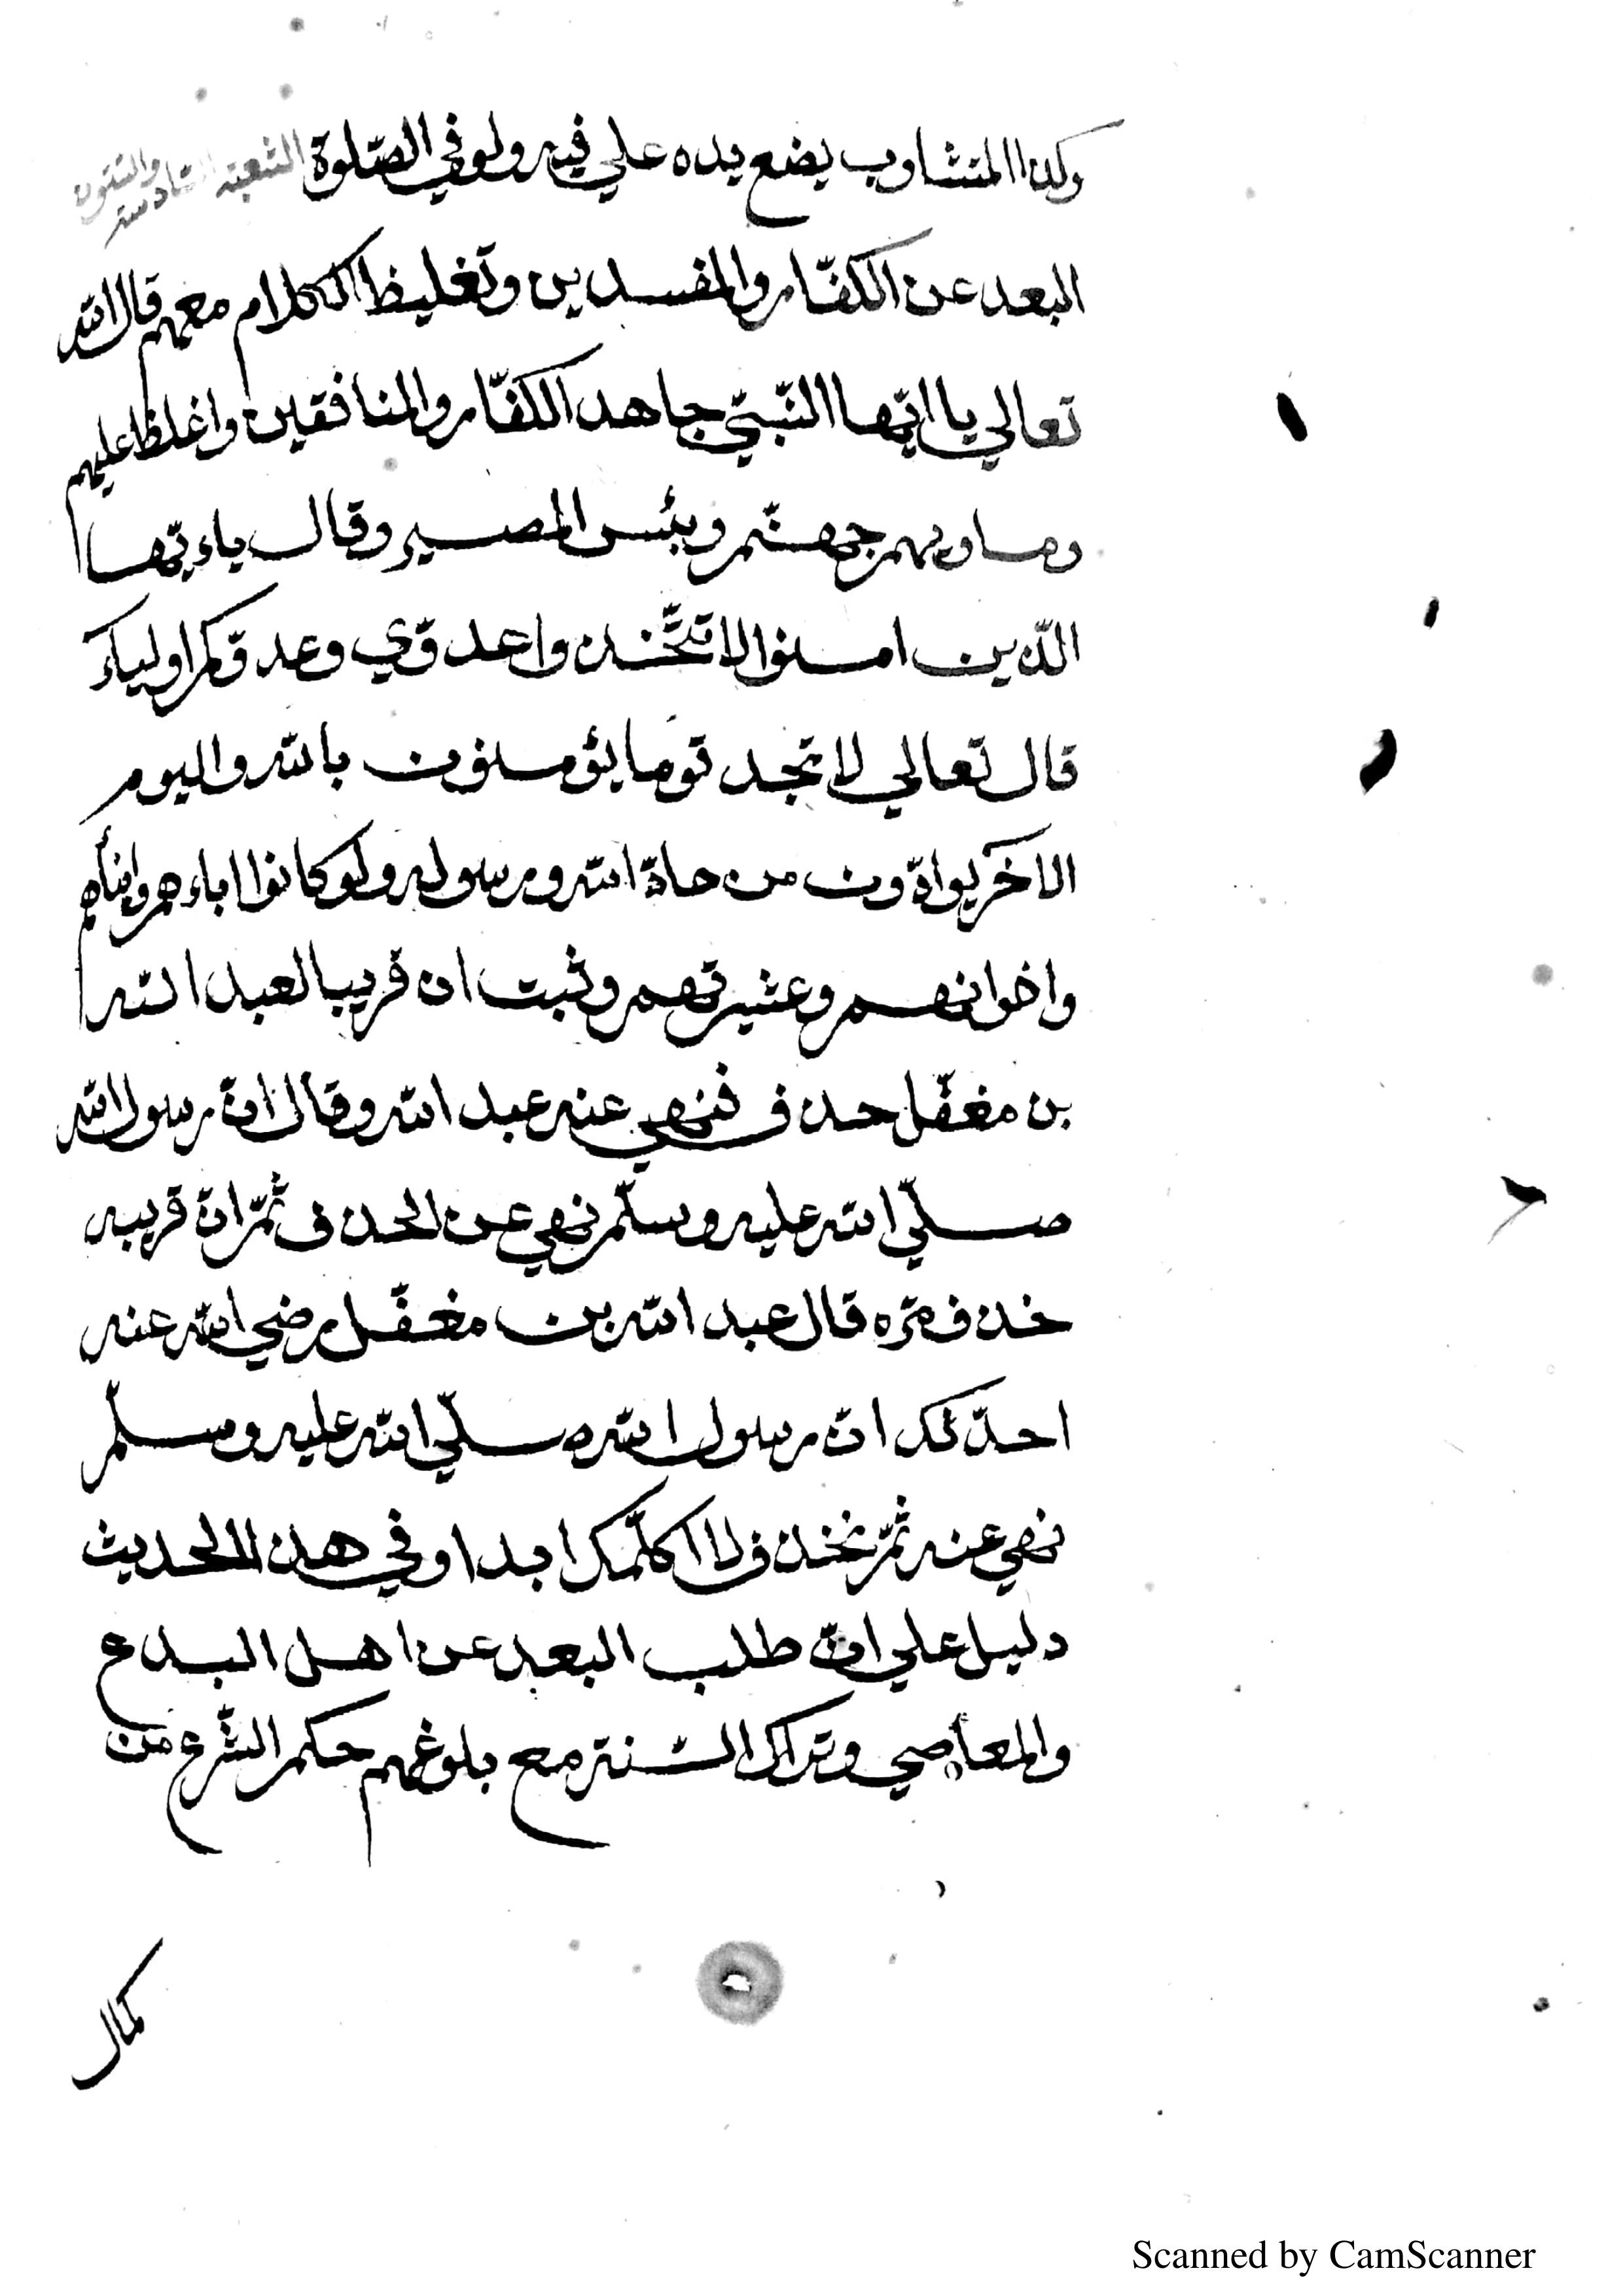 وكذا المتثاوب يضع يده علي فيه ولو في الصّلوة الشعبة السّادسة والستّون
البعد عن الكفّار والمفسدين وتغليظ الكلام معهم قال اللّه
تعالي يا ايّها النّبيّ جاهد الكفّار والمنافقين واغلظ عليهم
وماويهم جهنّم وبئس المصير وقال ياءيّها
الّذين امنوا لا تتّخذوا عدوّي وعدوّكم اولياءَ
قال تعالي لا تجد قوما يؤمنون باللّه واليوم
الاخر يوادّون من حادّ اللّه ورسوله ولو كانوا اباءهم وابنأهم
واخوانهم وعشيرتهم وثبت ان قريبا لعبد اللّه
بن مغفّل حذف فنهي عنه عبد اللّه وقال انّ رسول اللّه
صلّي اللّه عليه وسلّم نهي عن الحذف ثمّ انّ قريبه
خذف مرّه قال عبد اللّه بن مغفّل رضي اللّه عنه
احدّثك انّ رسول اللّه صلّي اللّه عليه وسلّم
نهي عنه ثمّ تخذف لا اكلّمك ابدا وفي هذا الحديث
دليل علي انّ طلب البعد عن اهل البدع
والمعاصي وتراك السّنة مع بلوغهم حكم الشّرع من
Scanned by CamScanner